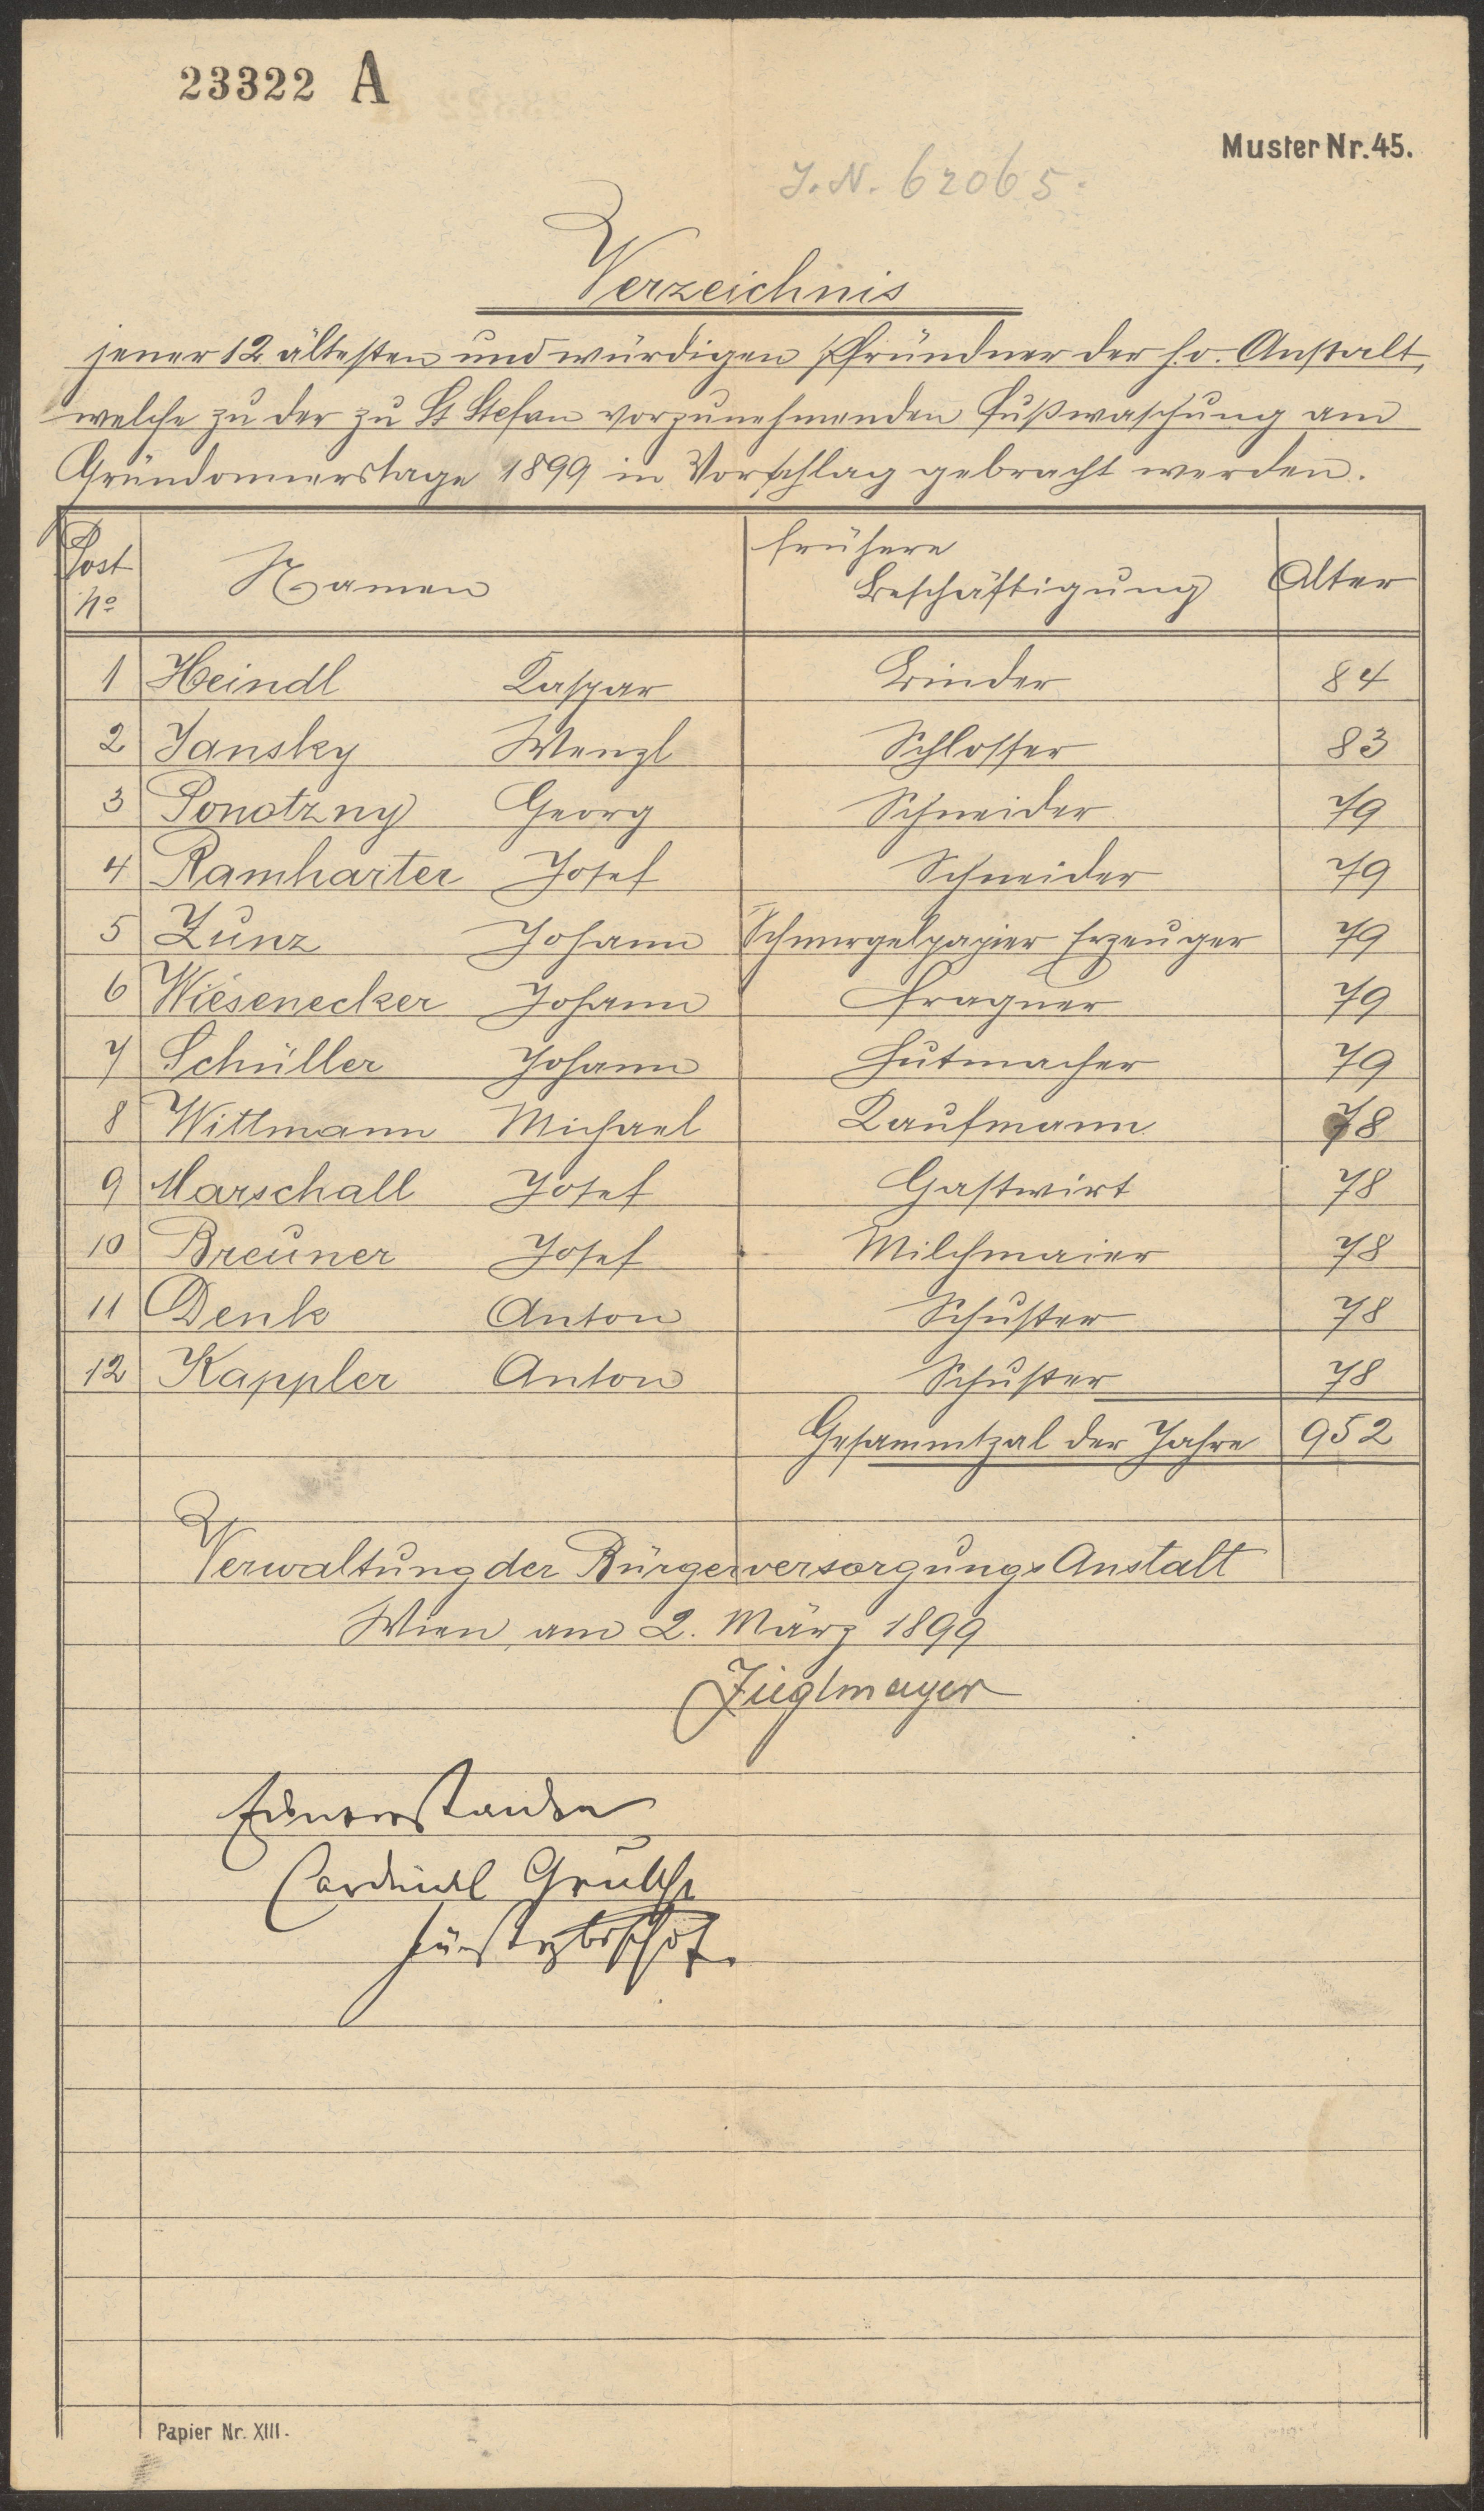 23322 A
Muster Nr. 45.
J. N. 62065.
Verzeichnis
jener 12 ältesten und würdigen Pfründner der h.o. Anstalt,
welche zu der zu St Stefan vorzunehmenden Fußwaschung am
Gründonnerstage 1899 in Vorschlag gebracht werden.
Post No Namen frühere Beschäftigung Alter
1 Heindl Kaspar Binder 84
2 Jansky Wenzl Schlosser 83
3 Ponotzny Georg Schneider 79
4 Ramharter Josef Schneider 79
5 Zunz Johann Schmirgelpapier Erzeuger 79
6 Wiesenecker Johann Fragner 79
7 Schüller Johann Hutmacher 79
8 Wittmann Michael Kaufmann 78
9 Marschall Josef Gastwirt 78
10 Breuner Josef Milchmaier 78
11 Denk Anton Schuster 78
12 Kappler Anton Schuster 78
Gesammtzal der Jahre 952
Verwaltung der Bürgerversorgungs Anstalt
Wien, am 2. März 1899
Zieglmayer
Einverstanden
Cardinal Gruscha
Fürsterzbischof.
Papier Nr. XIII.